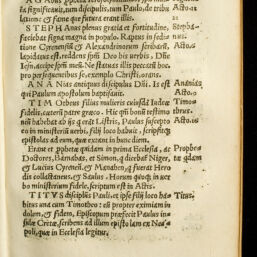 AGABVS
significauit, tum discipulis, tum Paulo, de tribu Acto.11
latione, & fame quę futura erant illis.
STEPHANus plenus gratia et fortitudine, Stepha-
faciebat signa magna in populo. Raptus in sedi- nus.
tione Cyrenensiū, & Alexandrinorum scribarū, Acto.6
lapidatus est, reddens spm̄ Deo his verbis, Dñe
Iesu, accipe spm̄ meū. Ne statuas illis peccatū hoc.
pro persequutoribus se, exemplo Christi, orans.
ANANias antiquus discipulus Dñi. Is est Ananias
qui Paulum apostolum baptisauit. Acto.
TIMOtheus filius mulieris cuiusdā Iudaeæ Timo-
fidelis, cæterū patre græco. Hic qm̄ bonū testimo- theus.
niū habebat ab ijs q̄ erāt Listris, Paulus suscepto Acto.
eo in ministeriū verbi, filij loco habuit, scripsitq;
epistolas ad eum, quæ extant in hunc diem.
Erant et ꝓphetæ quidam in prima Ecclesia, & Prophe-
Doctores, Barnabas, et Simon, q dicebat Niger, tæ qdam
et Lucius Cyrenēs. & Manahen, q fuerat Hero
dis collactaneus, & Saulus. Horum quoq; in ver
bo ministerium fidele, scriptum est in Actis.
TITVS discipulꝰ Pauli, et ipse filij loco ha- Titus.
bitus una cum Timotheo: cū propter eximiam in
dolem, & fidem, Episcopum præfecit Paulus in-
sulæ Cretæ, scribens ad illum epistolam ex Nea-
poli, quæ in Ecclesia legitur.